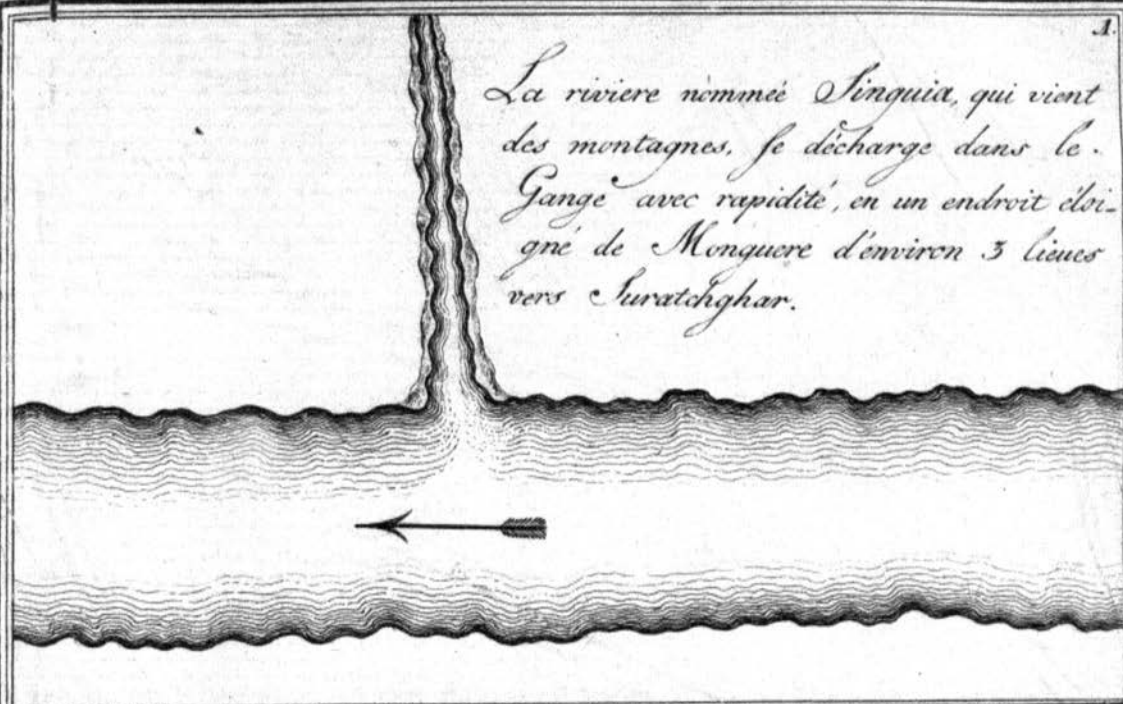 1.
La riviere nommée Singuia, qui vient
des montagnes, se décharge dans le
Gange avec rapidité, en un endroit éloi-
gné de Monguere d'environ 3 lieues
vers Suratchghar.